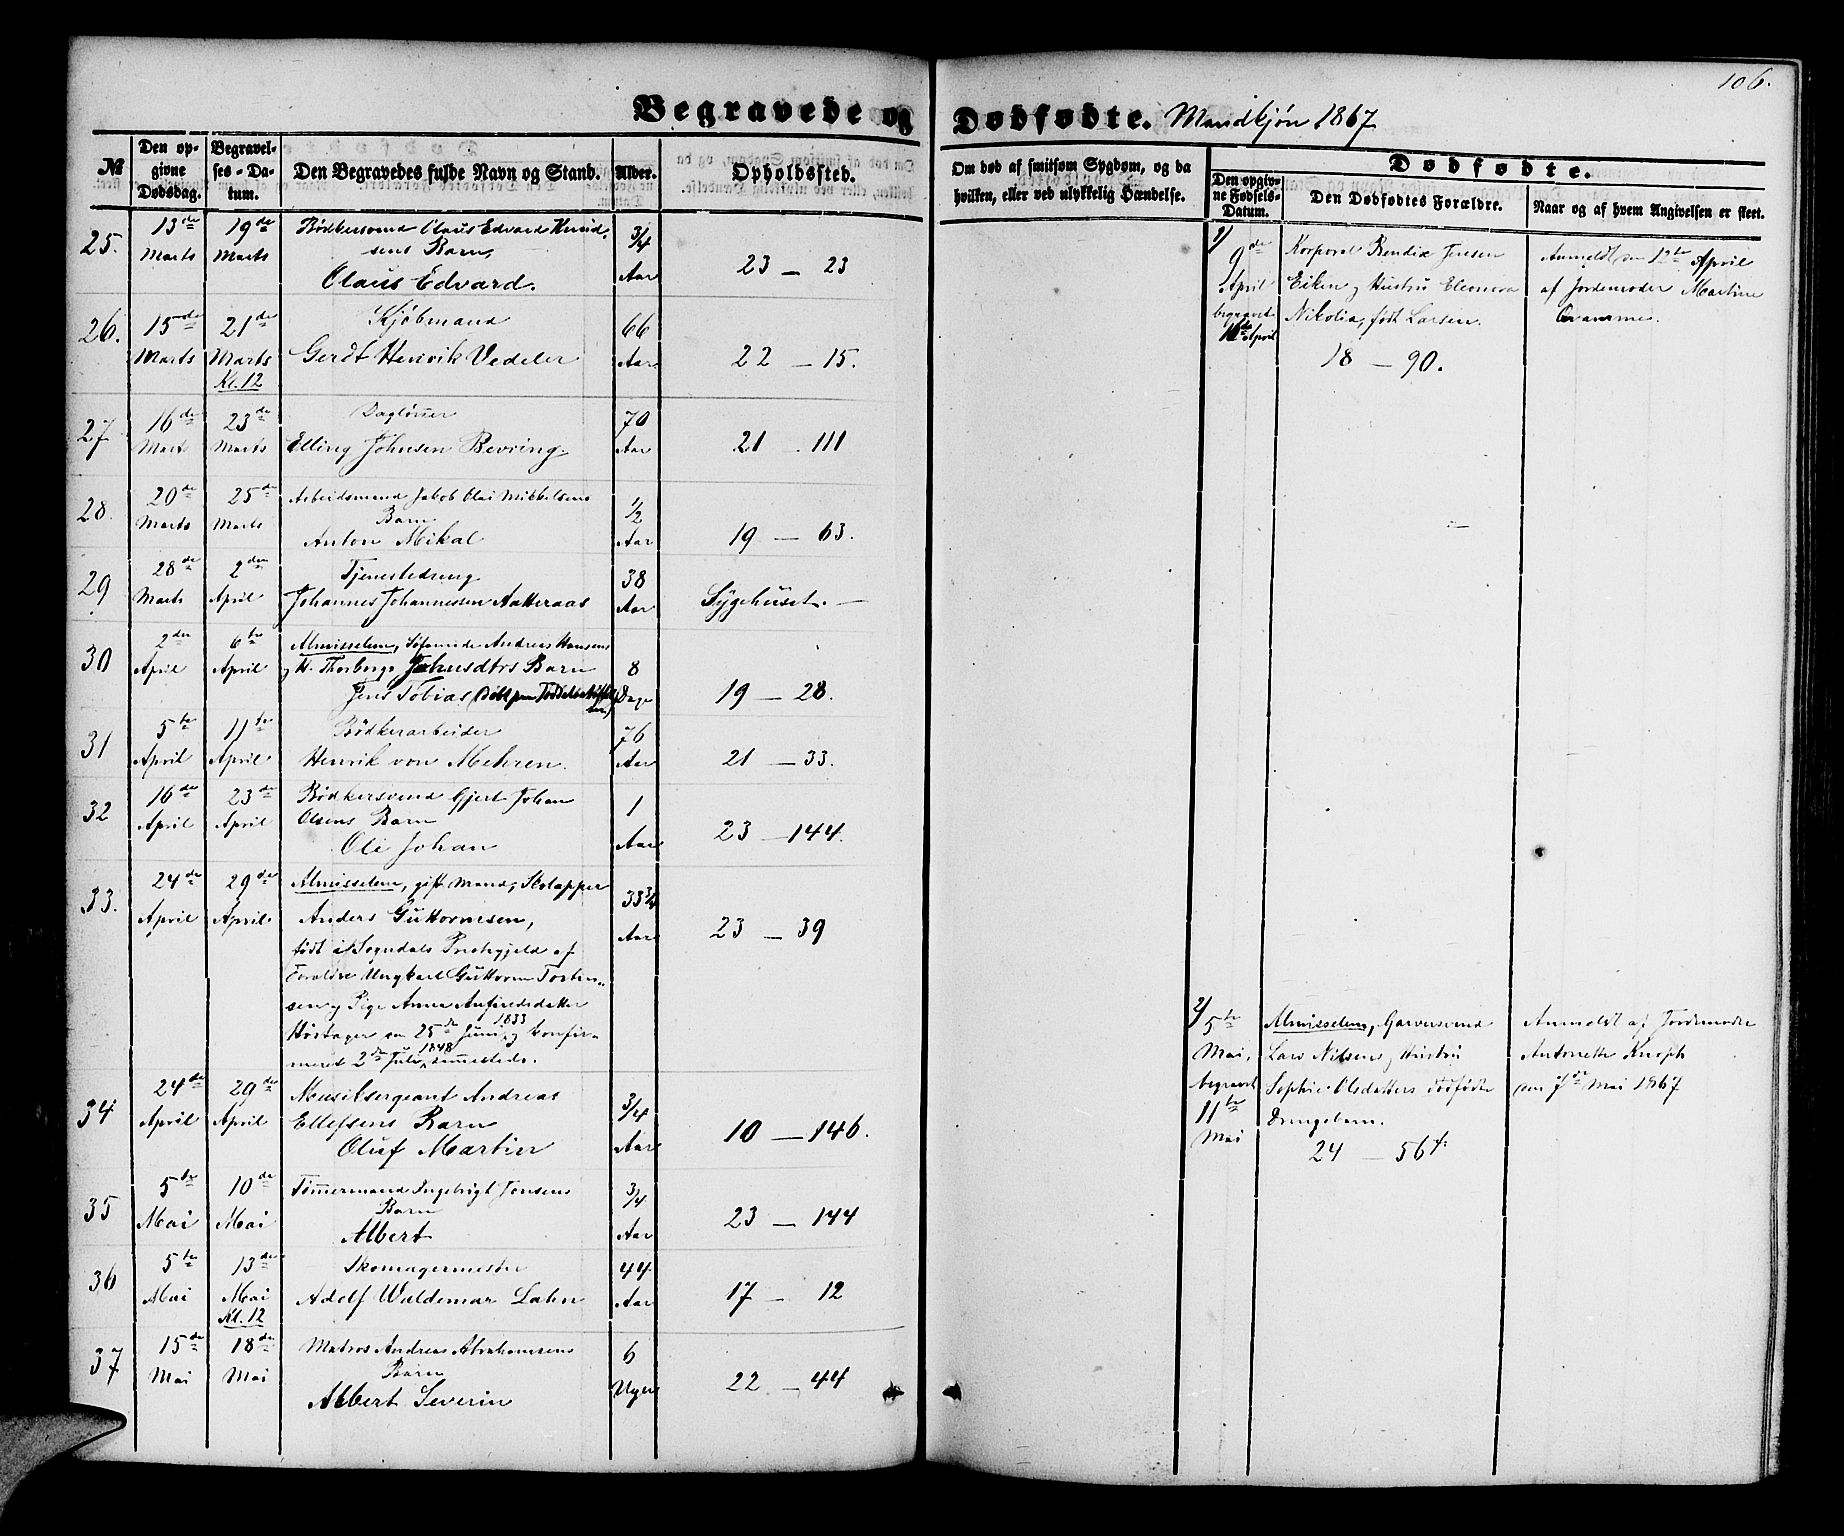 106.
Begravede og Dødfødte. Mandkjøn 1867
№
Den opgivne Dødsdag.
Begravelses-Datum.
Den Begravedes fulde Navn og Stand.
Alder.
Opholdssted.
Om død af smitsom Sygdom, og da hvilken, eller ved ulykkelig Hændelse.
Dødfødte.
Den opgivne Fødsels-Datum.
Den Dødfødtes Forældre.
Naar og af hvem Angivelsen er skeet.
25. 13de Marts 19de Marts Bødkersvend Claus Edvard
sens Barn
Olaus Edvard. 3/4 Aar 23 — 23
26. 15de Marts 21de Marts Kl. 12 Kjøbmand
Gerdt Henrik Vedeler 66 Aar 22 — 15.
27 16de Marts 23de Marts Dagløner
Elling Johnsen Bevring. 70 Aar 21 . 111
28. 20de Marts 25de Marts Arbeidsmand Jakob Olai Mikkelsens
Barn
Anton Mikal 1/2 Aar 19 — 63.
29 28de Marts 2den April Tjenestedreng
Johannes Johannessen Aatteraas 38 Aar Sygehuset. —
30 2den April 6te April Almisselem, Andreas Hansens
og H. Thorborg Johnsdtrs Barn
Jens Tobias 8 Dage 19 — 28.
31 5te April 11te April Bødkerarbeider
Henrik von Mehren. 76 Aar 21 — 33.
32 16de April 23de April Bødkersvend Gjert Johan
Olsens Barn
Ole Johan 1 Aar 23 — 144.
33. 24de April 29de April Almisselem, gift Mand, Skolapper
Anders Guttormsen,
født i Sogndals Præstegjeld af
Forældre Ungkarl Guttorm Tosten-
sen og Pige Anna Anfindsdatter
25de Juni 1833 og konfir-
meret 2den Juli 1848 sammesteds. 33 3/4 Aar 23 — 39
34 24de April 29de April Musiksergeant Andreas
Ellefsens Barn
Oluf Martin 3/4 Aar 10 — 146.
35 5te Mai 10de Mai Tømmermand Ingebrigt Jonsens
Barn
Albert 3/4 Aar 23 — 144
36 5te Mai 13de Mai Kl. 12 Skomagermester
Adolf Waldemar Lahn 44 Aar 17 — 12
37 15de Mai 18de Mai Matros Andreas Abrahamsens
Barn
Albert Severin 6 Uger 22 — 44
1/ 9de April begravet April Korporal Bendix Jensen
Eiken og Hustru Eleonora
Nikolia, født Larsen.
18 — 90.
Anmeldt den 12te April
af Jordemoder Martine
2/ 5te Mai, begravet 11te Mai Almisselem, Garversvend
Lars Nilsens og Hustru
Sophie Olsdatters dødfødte
Drengebarn.
24 — 56
Anmeldt af Jordemoder
Antonette Knoph
den 7de Mai 1867